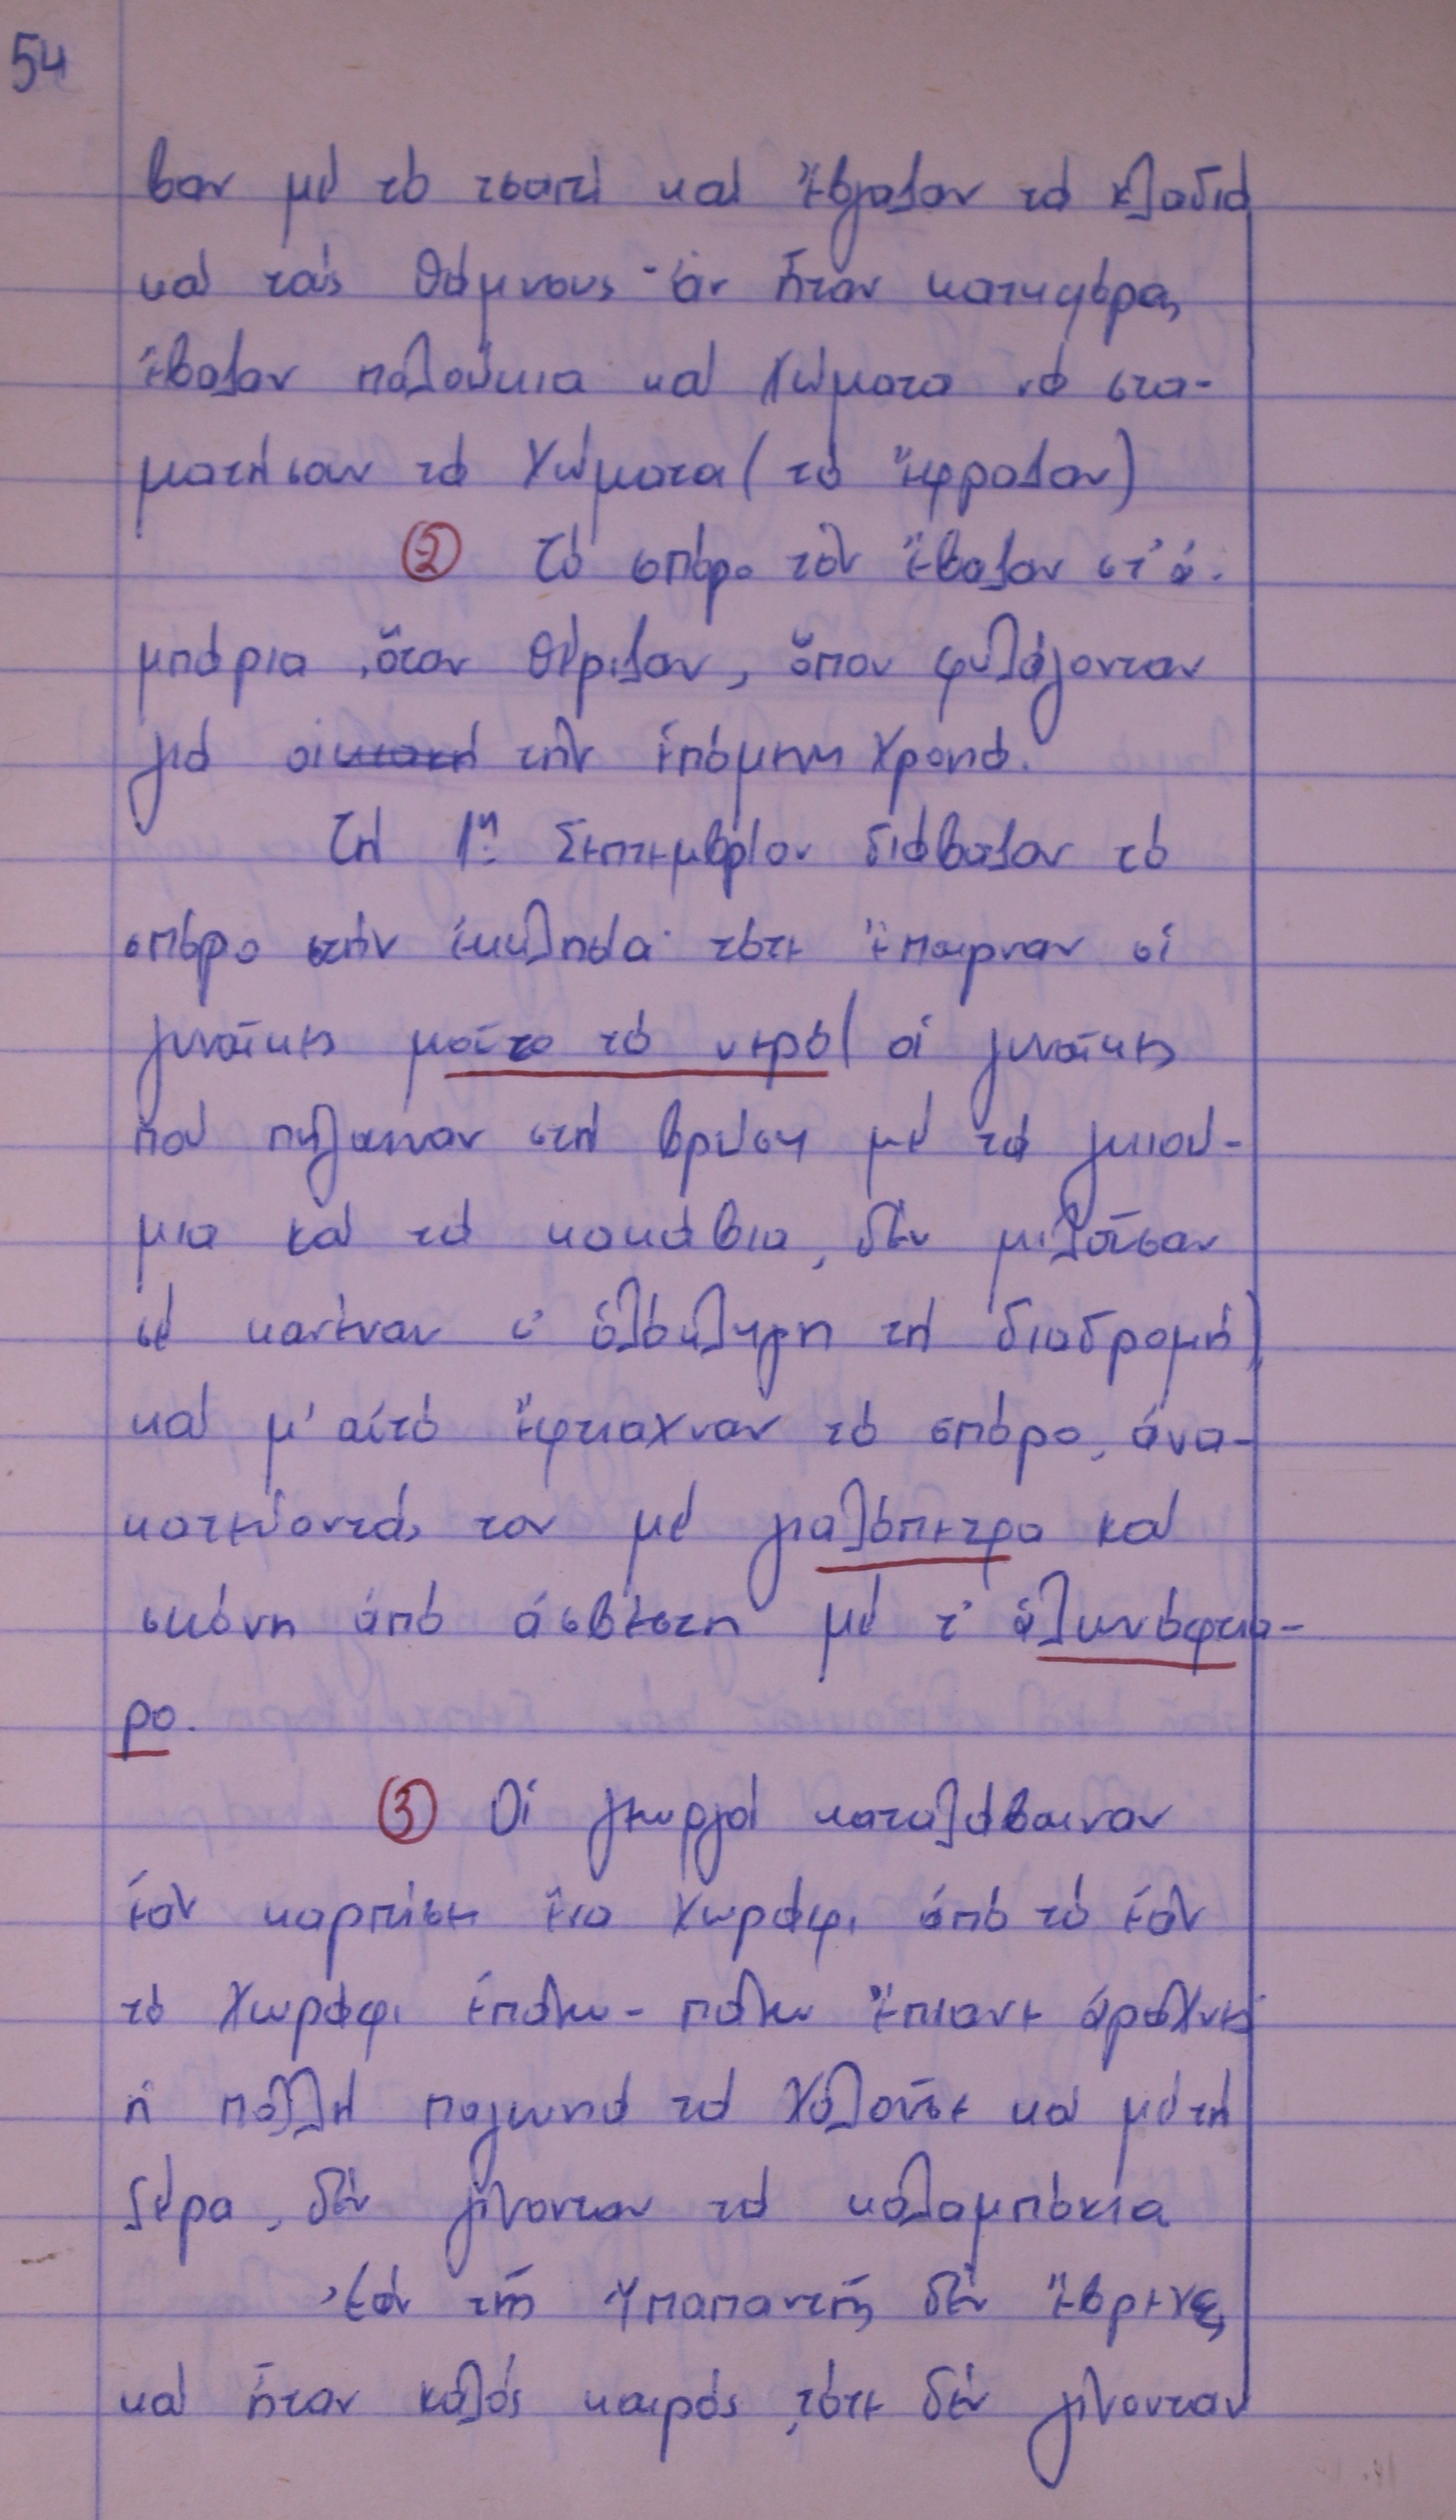 54
βαν μέ τό τσαπί καί ἔβγαζαν τά κλαδιά
καί τούς θάμνους· ἄν ἦταν κατηφόρα,
ἔβαζαν παλούκια καί χώματα νά στα-
ματήσουν τά χώματα (τό ἔφραζαν)
② Τό σπόρο τόν ἔβαζαν στ' ἀ-
μπάρια, ὅταν θέριζαν, ὅπου φυλάγονταν
γιά τήν ἑπόμενη χρονιά.
Τή 1η Σεπτεμβρίου διάβαζαν τό
σπόρο στήν ἐκκλησία· τότε ἔπαιρναν οἱ
γυναῖκες μοῦτο τό νερό (οἱ γυναῖκες
πού πήγαιναν στή βρύση μέ τά γκιού-
μια καί τά κακάβια, δέν μιλοῦσαν
σέ κανέναν σ' ὁλόκληρη τή διαδρομή)
καί μ' αὐτό ἔφτιαχναν τό σπόρο, ἀνα-
κατεύοντάς τον μέ γαλόπετρα καί
σκόνη ἀπό ἀσβέστη μέ τ' ἁλωνόφτυα-
ρο.
③ Οἱ γεωργοί καταλάβαιναν
ἐάν καρπίσει ἕνα χωράφι ἀπό τό ἐάν
τό χωράφι ἐπάνω-πάνω ἔπιανε ἀράχνες·
ἡ πολλή παγωνιά τά χάλοῦσε καί μέ τή
ξέρα, δέν γίνονταν τά καλαμπόκια
Ἐάν τῆς Ὑπαπαντῆς δέν ἔβρεχε,
καί ἦταν καλός καιρός, τότε δέν γίνονταν